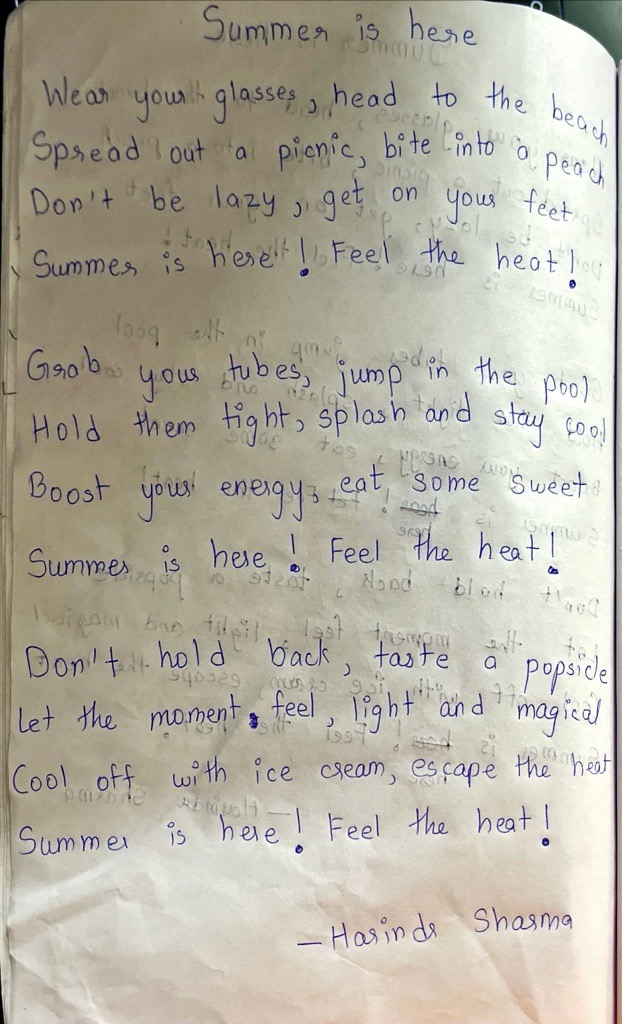 Summer is here
Wear your glasses, head to the beach
Spread out a picnic, bite into a peach
Don't be lazy, get on your feet
Summer is here! Feel the heat!
Grab your tubes, jump in the pool
Hold them tight, splash and stay cool
Boost your energy, eat some sweet
Summer is here! Feel the heat!
Don't hold back, taste a popsicle
Let the moment feel, light and magical
Cool off with ice cream, escape the heat
Summer is here! Feel the heat!
— Harindr Sharma